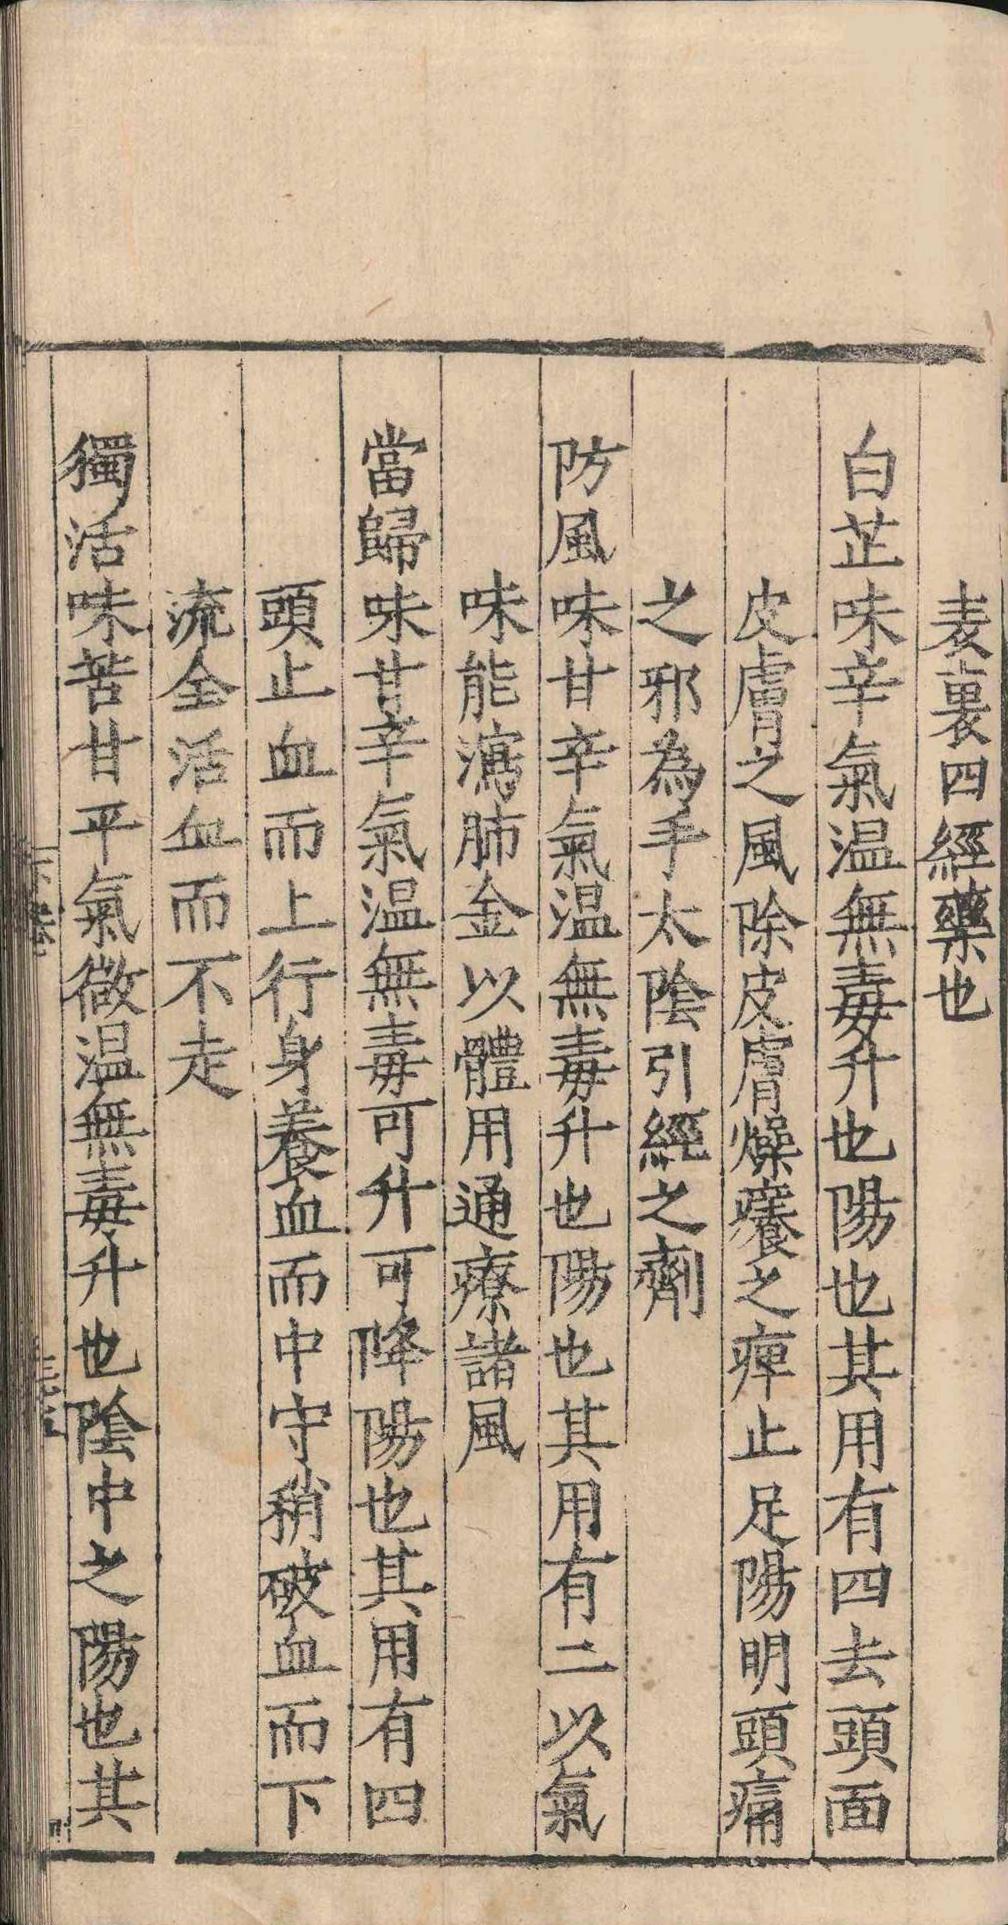 表裏四經藥也
白芷味辛氣温無毒升也陽也其用有四去頭面
皮膚之風除皮膚燥癢之痺止足陽明頭痛
之邪為手太陰引經之劑
防風味甘辛氣温無毒升也陽也其用有二以氣
味能瀉肺金以體用通療諸風
當歸味甘辛氣温無毒可升可降陽也其用有四
頭止血而上行身養血而中守稍破血而下
流全活血而不走
獨活味苦甘平氣微温無毒升也陰中之陽也其